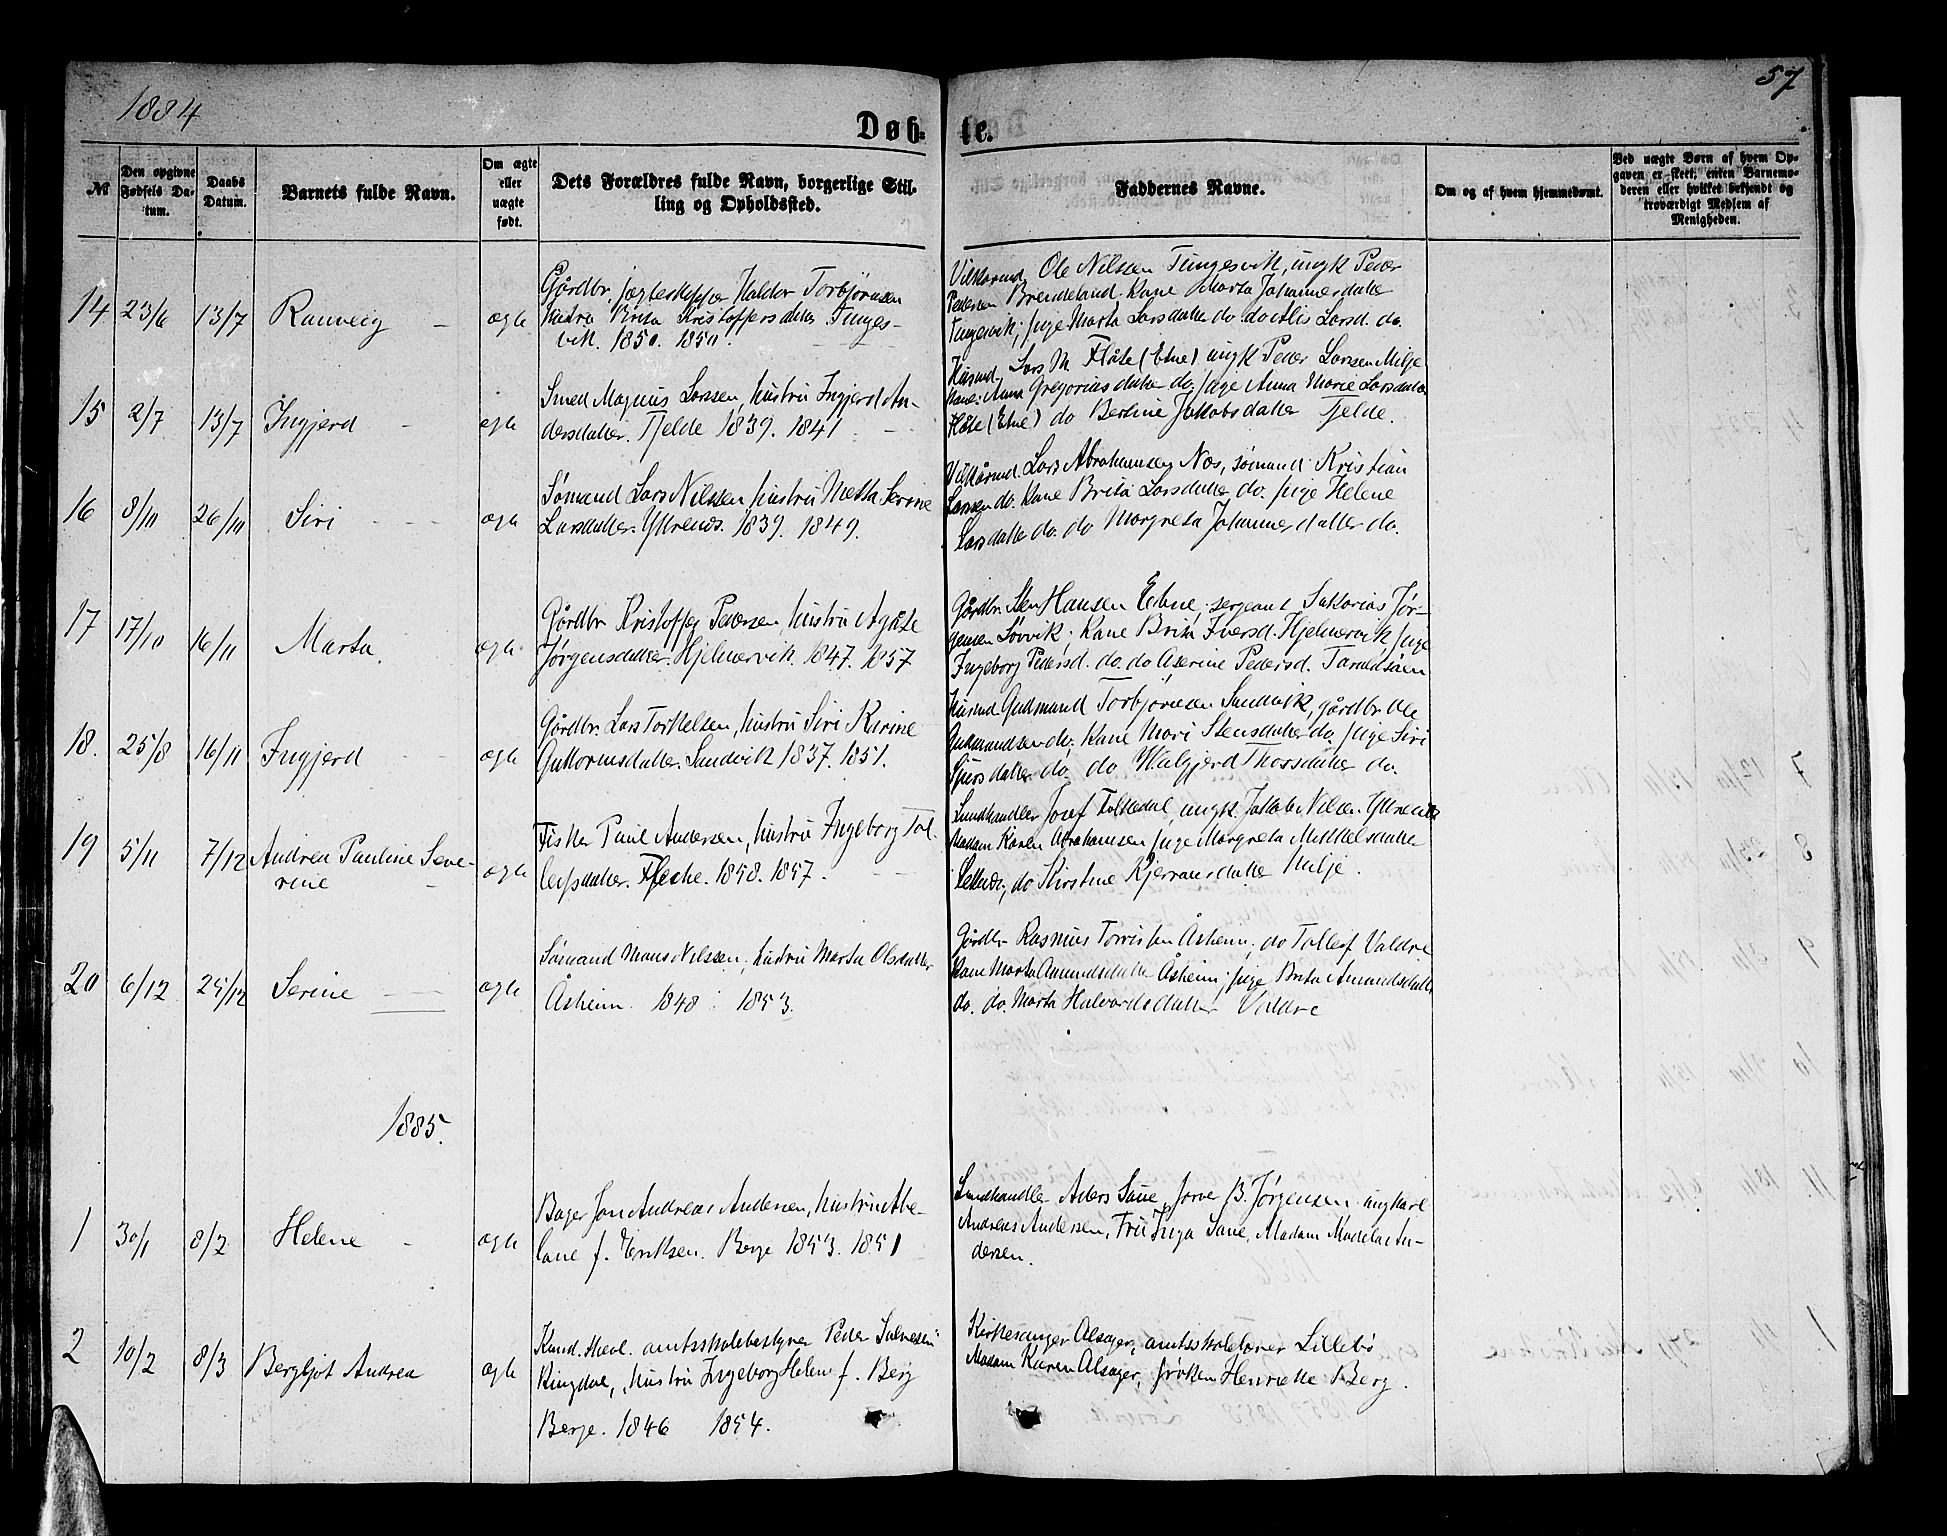 1884
57
Døb-
te.
№
Den opgivne Fødsels Datum.
Daabs Datum.
Barnets fulde Navn.
Om ægte eller uægte født.
Dets Forældres fulde Navn, borgerlige Stilling og Opholdssted.
Faddernes Navne.
Om og af hvem hjemmedøbt.
Ved uægte Børn af hvem Opgaven er skeet, enten Barnemoderen eller hvilket bekjendt og troværdigt Medlem af Menigheden.
14 23/6 13/7 Ranveig - ægte
Gårdbr. jægteskipper Haldor Torbjørnsen
hustru Brita Kristoffersdatter Tunges-
vik. 1850. 1850.
Vilkårmd. Ole Nilssen Tungesvik, ungk Peder
Pedersen Brendeland. Kone Marta Johannesdatter
Tungesvik; pige Marta Larsdatter do. do Alis Larsd. do.
15 2/7 13/7 Ingjerd - ægte
Smed Magnus Larssen, hustru Ingjerd An-
dersdatter. Tjelde 1839. 1841
Husmd. Lars M. Flåte (Etne) ungk Peder Larssen Milje
Kone: Anna Gregoriusdatter do. pige Anna Marie Larsdatter
Flåte (Etne) do Berline Jakobsdatter Tjelde.
16 8/10 26/10 Siri - ægte
Sømand Lars Nilssen, hustru Metta Serine
Larsdatter. Ytrenes. 1839. 1849.
Vilkårmd. Lars Abrahamsen Nes, sømand Kristian
Larsen do. Kone Brita Larsdatter do. pige Helene
Larsdatter do. do Margreta Johannesdatter do.
17 17/10 16/11 Marta. ægte
Gårdbr Kristoffer Pedersen, hustru Agate
Jørgensdatter. Hjelmervik. 1847. 1857
Gårdbr Sten Hansen Etne, sergeant Sakarias Jør-
gensen Løvvik; Kone Brita Iversd. Hjelmervik pige
Ingeborg Pedersd. do. do Aserine Pedersd. Taraldsøen
18. 25/8 16/11 Ingjerd ægte
Gårdbr. Lars Torkelsen, hustru Siri Karine
Guttormsdatter. Sandvik 1837. 1851.
Husmd Gudmund Torbjørnsen Sandvik, gårdbr. Ole
Gudmundsen do; Kone Mari Stensdatter do, pige Siri
Sjursdatter do. do Walgjerd Thorsdatter do.
19 5/11 7/12 Andrea Pauline Seve-
rine - ægte
Fisker Paul Andersen, hustru Ingeborg Tol-
lefsdatter. 1858. 1857.
Landhandler Josef Folkedal, ungk. Jakob Nilsen Ytrenes
Madam Karen Abrahamsen pige Margreta Mikkelsdatter
do Kirstine Milje.
20 6/12 25/12 Serine ægte
Sømand Mons Nilssen, hustru Marta Olsdatter
Åsheim 1848 1853.
Gårdbr Rasmus Åsheim, do Tollef Valdre
Kone Marta Amundsdatter Åsheim; pige Brita Amundsdatter
do. do. Marta Halvardsdatter Valdre
1885.
1 30/1 8/2 Helene - ægte
Bager Jon Andreas Andersen, hustru Abe-
lane f. Eriksen. Berge 1853. 1851
Landhandler Aders Saue, B. Jørgensen ungkarl
Andreas Andersen, Fru Inga Saue, Madam Madela An-
dersen.
2 10/2 8/3 Bergljot Andrea ægte
Kand. theol. amtsskolebestyrer Peder Salvesen
Ringdal, hustru Ingeborg Helene f. Berg
Berge. 1846 1854.
Kirkesanger Alsager, amtsskolelærer Lillebø
Madam Karen Alsager, frøken Henriette Berg.